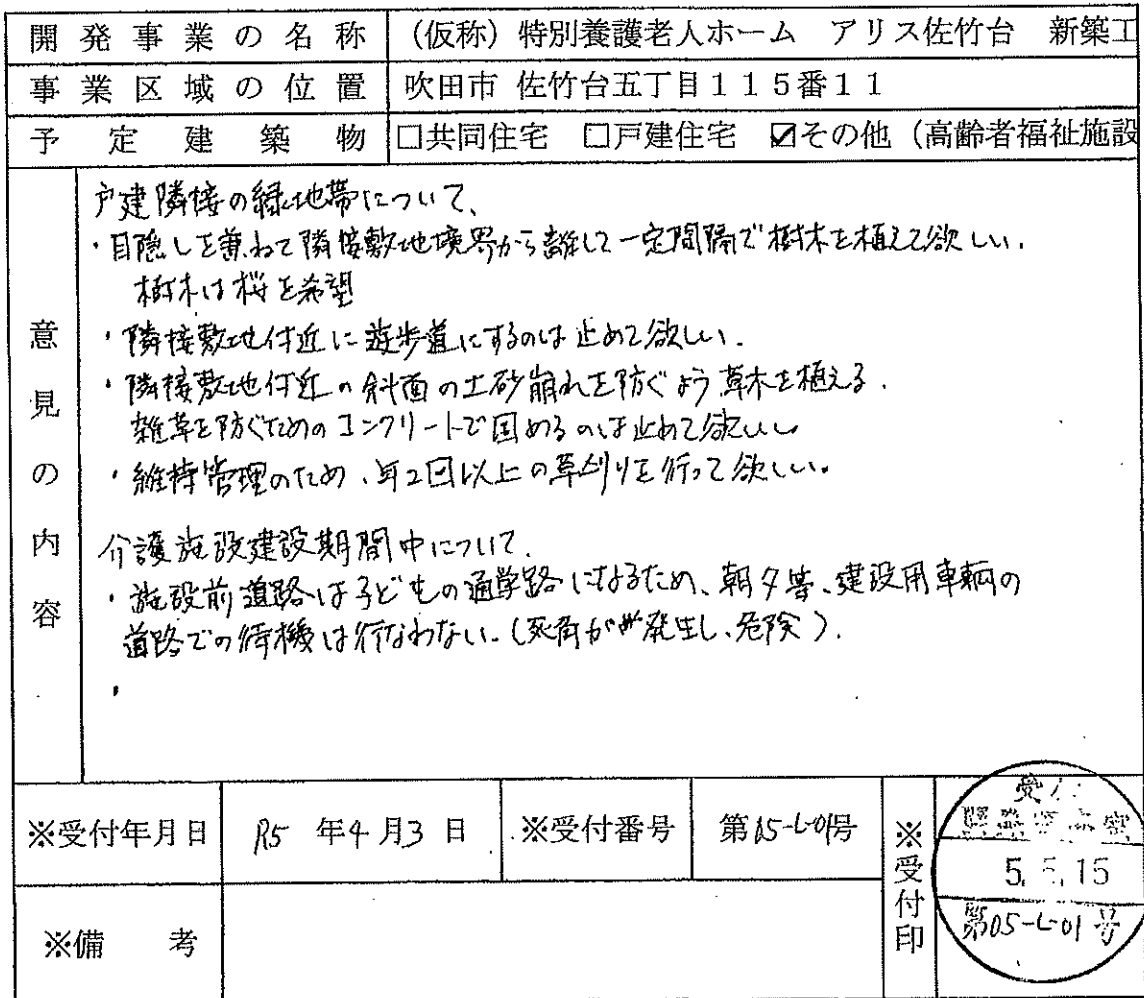 開発事業の名称 (仮称)特別養護老人ホーム アリス佐竹台 新築工
事業区域の位置 吹田市 佐竹台五丁目115番11
予定建築物 □共同住宅 □戸建住宅 ☑その他(高齢者福祉施設
意見の内容
戸建隣接の緑地帯について、
・目隠しを兼ねて隣接敷地境界から離して一定間隔で樹木を植えて欲しい.
樹木は桜を希望
・隣接敷地付近に遊歩道にするのは止めて欲しい.
・隣接敷地付近の斜面の土砂崩れを防ぐよう草木を植える.
雑草を防ぐためのコンクリートで固めるのは止めて欲しい
・維持管理のため、年2回以上の草刈りを行って欲しい。
介護施設建設期間中について.
・施設前道路は子どもの通学路になるため、朝夕等、建設用車輌の
道路での待機は行なわない.(死角が発生し、危険).
・
※受付年月日 R5 年4月3日 ※受付番号 第05-L-01号 ※受付印
受付
5. 15
第05-L-01号
※備考